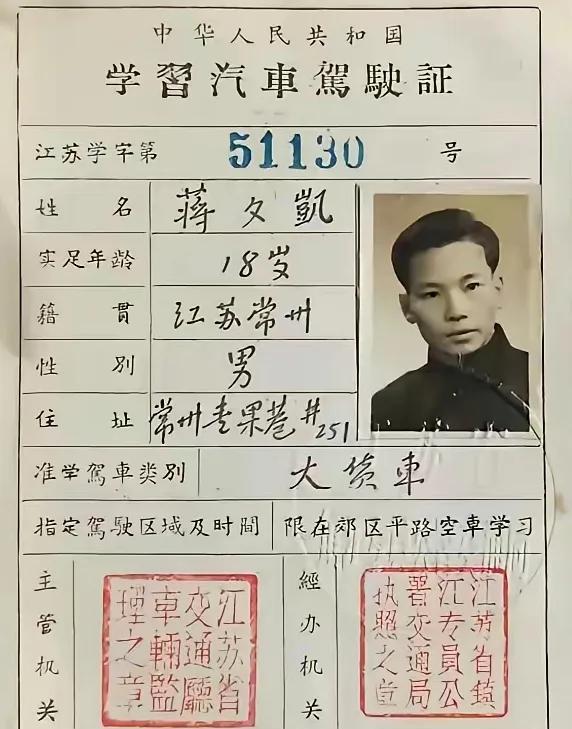 中华人民共和国
学習汽車駕駛証
江苏学字第 51130 号
姓名 蒋夕凱
实足年龄 18岁
籍貫 江苏常州
性别 男
住址 常州青果巷#251
准学駕車类别 大货車
指定駕駛区域及时間 限在郊区平路空車学习
主管机关
江苏省交通廳車輛監理之章
經办机关
江苏省鎮江专員公署交通局执照之章